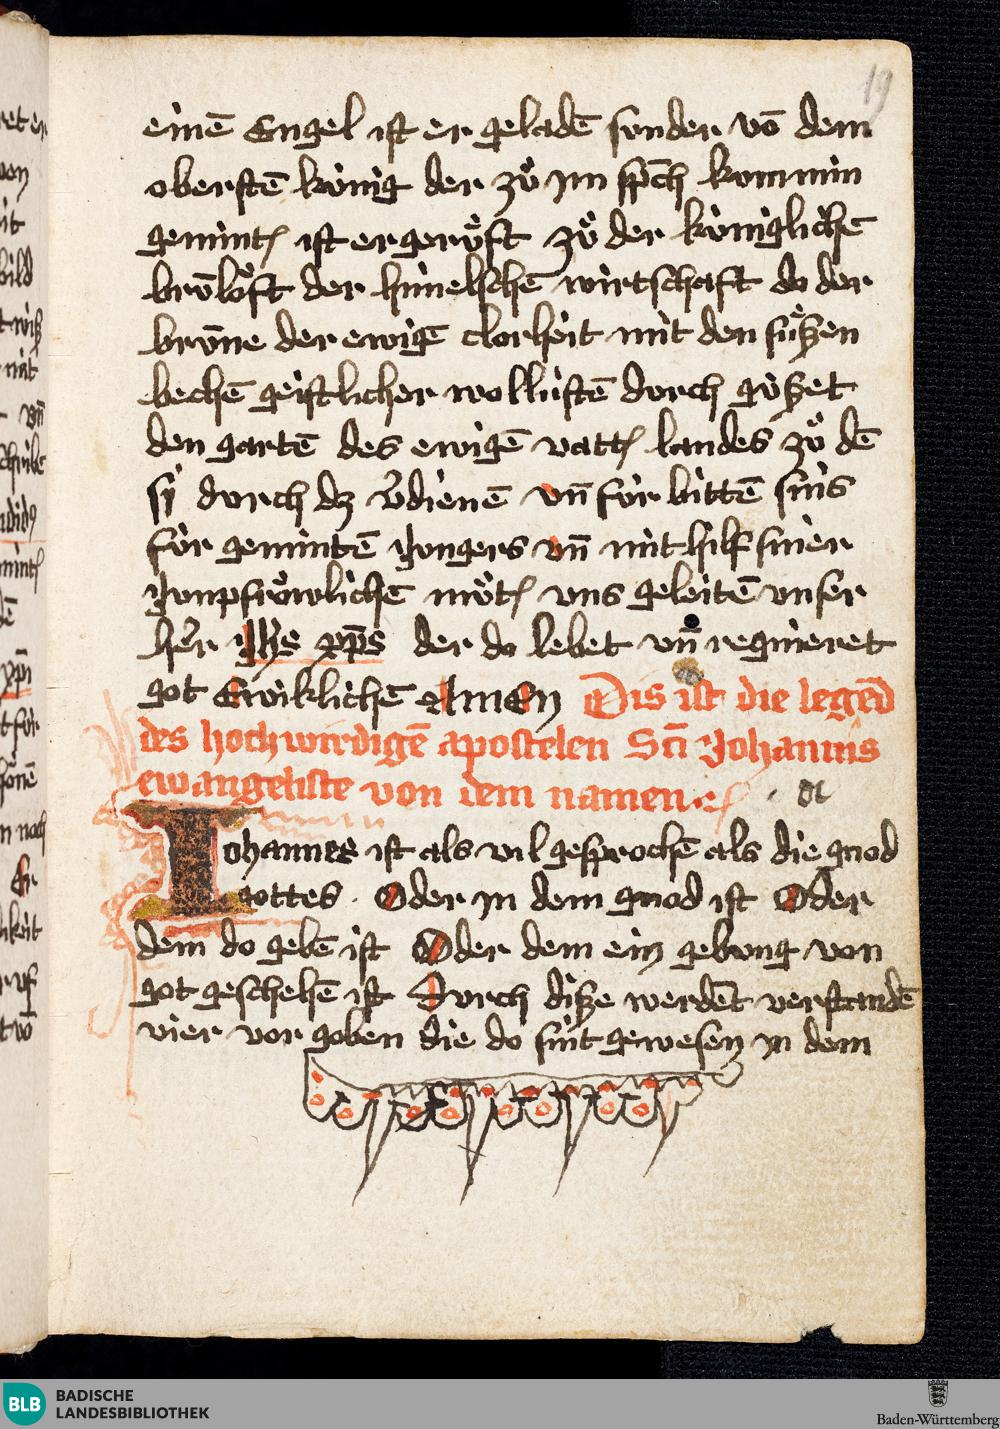 19
einē Engel ist er geladē sonder vō dem
oberstē kv́nig der zů jm spͨch kom min
gemintͬ ist er gerv̊ft zů der kv́niglichē
brv̄lŏft der himelschē wirtschaft do der
brv̄ne der ewigē clorheit mit den sůſzen
bechē geistlicher wollústē dvrch gv́ſzet
den gartē des ewigē vattͬ landes zů dē
sy dvrch dz v̓dienē vn̄ fv́r bittē sins
fv́r gemintē Jvngers vn̄ mit hilf siner
Jvnpfrŏwlichē mv̊tͬ vns geleitē vnser
her Jhs xp̄s der do lebet vn̄ regnieret
got Ewiklichē AmEN Dis ist die legēd
des hochwirdigē apostelen Sāt Johannis
ewangeliste von dem namen ⁊c
Iohannes ist als vil gesprochē als die gnod
gottes . Oder jn dem gnod ist Oder
dem do gebē ist Oder dem ein gebvng von
got geschehē ist Dvrch diſze werdēt verstandē
vier vor goben die do sint gewesen jn dem
BLB BADISCHE
LANDESBIBLIOTHEK
Baden-Württemberg